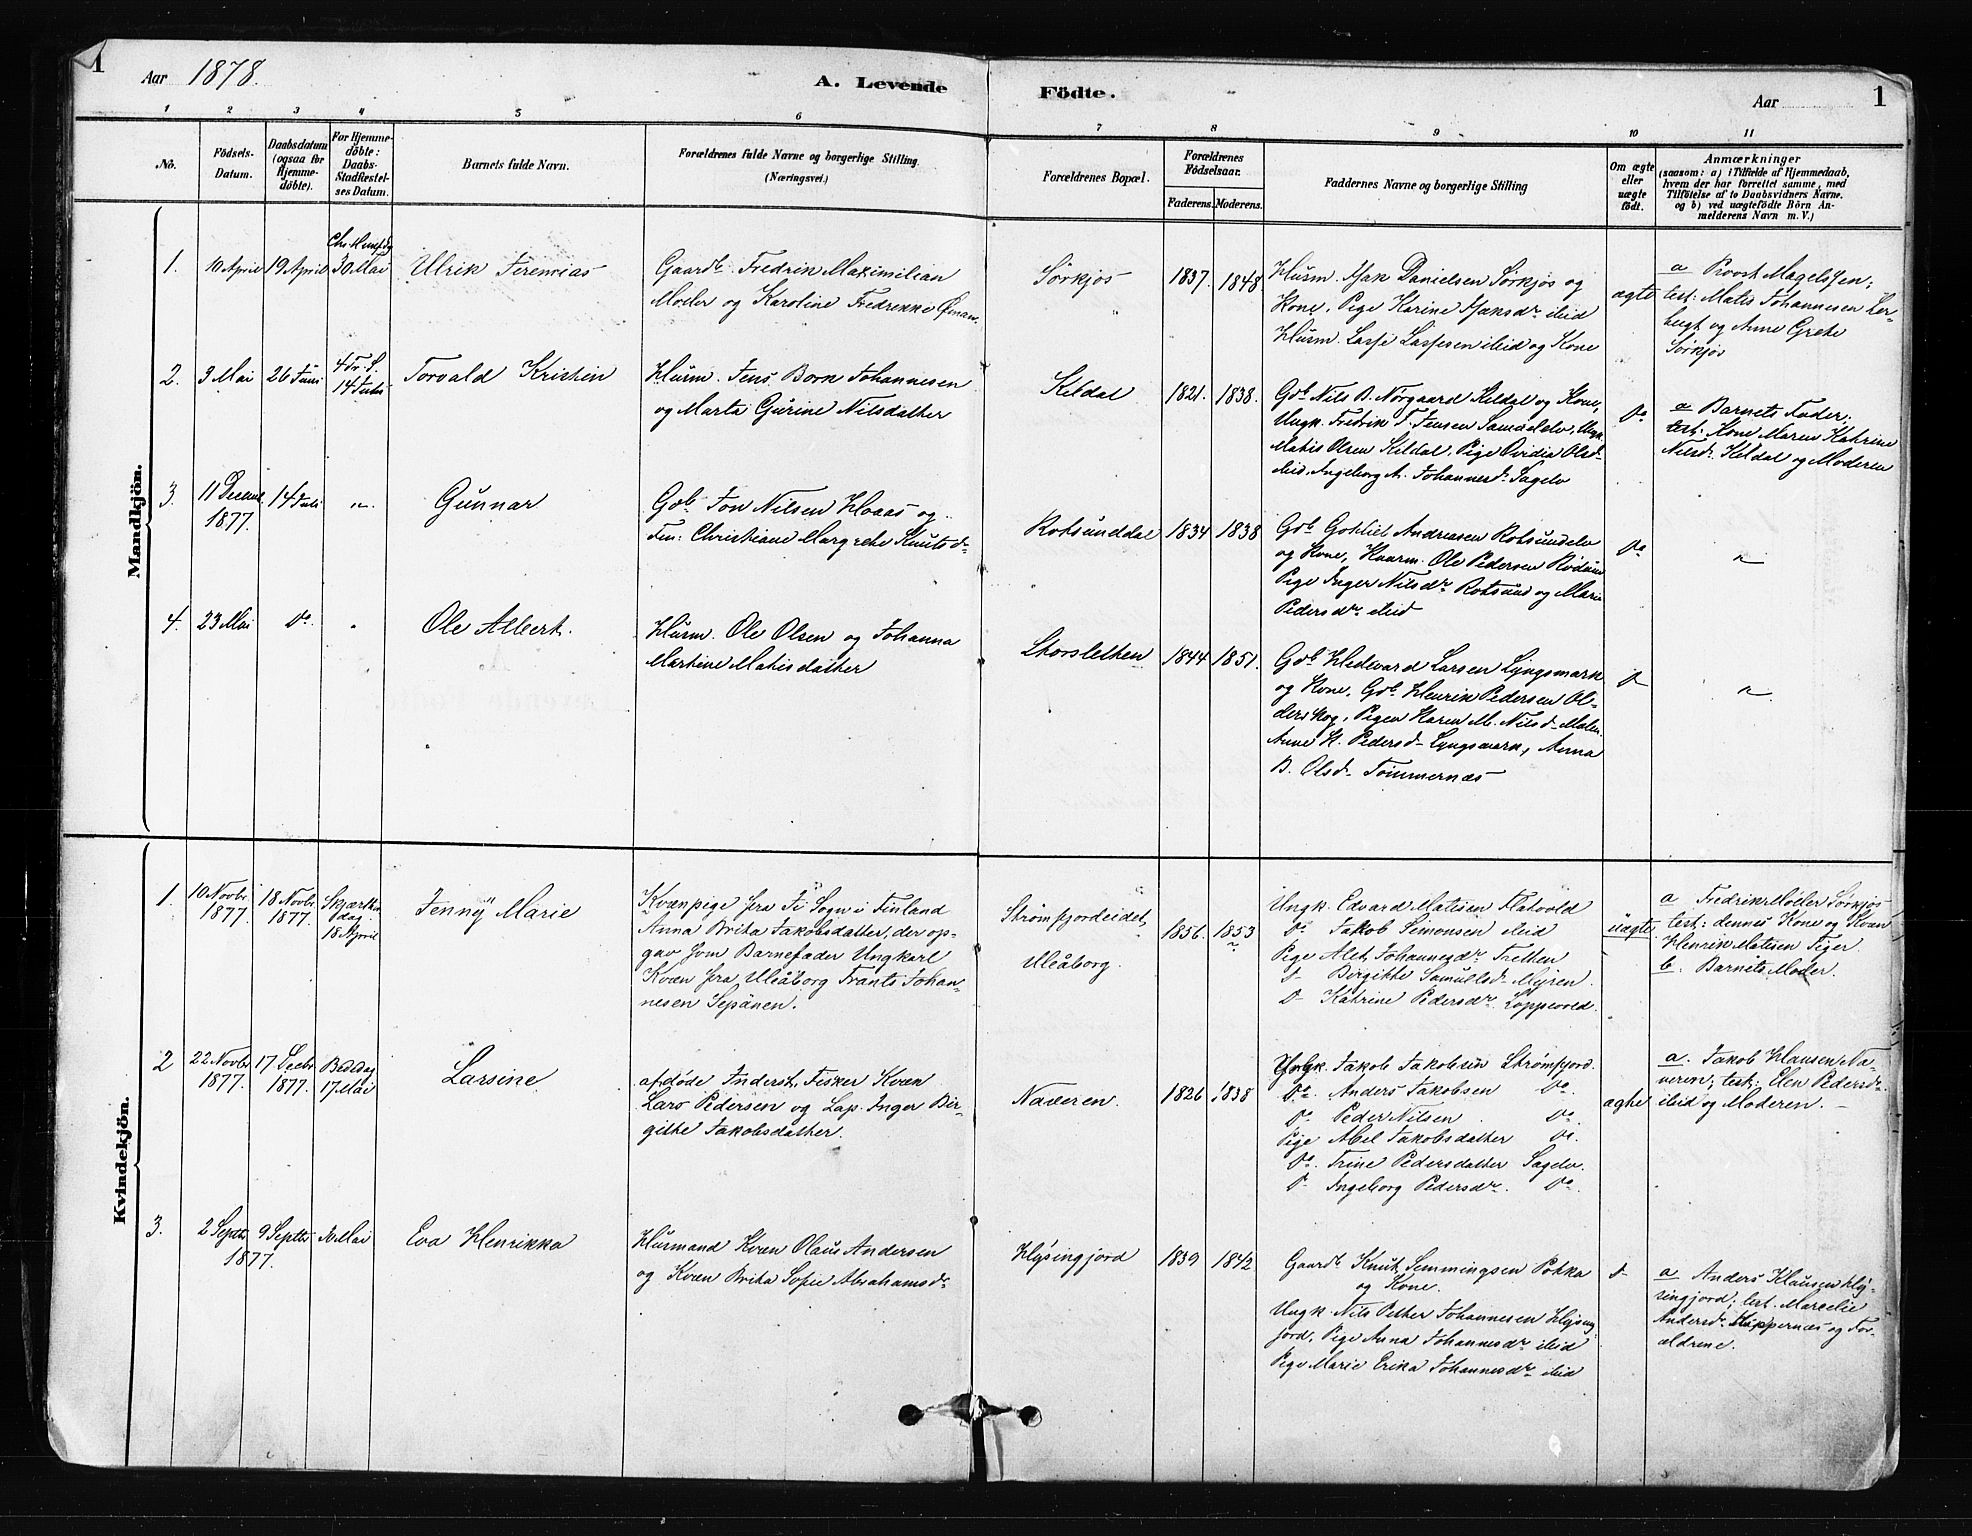 1 Aar 1878. A. Levende Födte. Aar 1
1 2 3 4 5 6 7 8 9 10 11
No. Födsels-Datum. Daabsdatum (ogsaa for Hjemme-döbte). For Hjemme-döbte: Daabs-Stadfæstelses Datum. Barnets fulde Navn. Forældrenes fulde Navne og borgerlige Stilling. (Næringsvei.) Forældrenes Bopæl. Forældrenes Födselsaar. Faderens. Moderens. Faddernes Navne og borgerlige Stilling Om ægte eller uægte födt. Anmærkninger (saasom: a) i Tilfælde af Hjemmedaab, hvem der har forrettet samme, med Tilföielse af to Daabsvidners Navne. og b) ved uægtefödte Börn Anmelderens Navn m. V.)
Mandkjön.
1. 10 April 19 April 30 Mai Ulrik Jeremias
Gaardb. Fredrik Maximilian
Moeler og Karoline Fredrekke Öman.
Sørkjos 1837. 1848
Husm. Isak Danielsen Sørkjos og
Kone, Pige Karine Isaksdr ibid
Husm. Lasse Lassesen ibid og Kone
ægte
a Provst Magelssen;
test: Matis Johannesen
og Anne Grete
Sørkjos
2. 3 Mai 26 Juni 4 Tr. S. 14 Juli Torvald Kristin
Husm. Jens Born Johannesen
og Marta Gurine Nilsdatter
Kildal 1821. 1838.
Gdb Nils B. Norgaard Kildal og Kone,
Ungk. Fredrik T. Jensen Samuelelv, Ungk.
Matis Olsen Kildal, Pige Ovidia Olsd
ibid, Ingeborg A. Johannesd. Sagelv
Do
a Barnets Fader;
test: Kone Maren Katrine
Nilsdr Kildal og Moderen
3. 11 Decemb. 1877. 14 Juli " Gunnar
Gdb. Jon Nilsen Hoaas og
Fin: Christiane Margrethe Knutsdr
Rotsunddal 1834 1838
Gdb Gottlieb Andreasen Rotsundelv
og Kone, Huusm. Ole Pedersen
Pige Inger Nilsdr Rotsund og Marie
Pedersdr ibid
Do "
4. 23 Mai Do. " Ole Albert.
Husm. Ole Olsen og Johanna
Martine Matisdatter
Storsletten 1844 1851.
Gdb Hedevard Larsen Lyngsmark
og Kone, Gdb. Henrik Pedersen Ol-
derskog, Pigen Karen M. Nilsd Molen
Anne K. Pedersd Lyngsmark, Anna
B. Olsd Tömmernæs
D "
Kvindekjön.
1. 10 Novbr. 1877. 18 Novbr. 1877. Skjærtorsdag 18 April Jenny Marie
Kvænpige fra Ii Sogn i Finland
Anna Brita Jakobsdatter, der op-
gav som Barnefader Ungkarl
Kvæn fra Uleåborg Frants Johan-
nesen Sepänen.
Strömfjordeidet, Uleåborg. 1856. 1853
Ungk. Edvard Matisen Flatvold
Do Jakob Simonsen ibid
Pige Alet Johannesdr Tretten
D Birgitte Samuelsd Myren.
D Katrine Pedersdr Loppevold.
uægte
a Fredrik Moeler Sørkjos
test: dennes Kone og Kvæn
Henrik Matisen Figer
b. Barnets Moder.
2 22 Novbr. 1877. 17 Decbr. 1877. Bededag 17 Mai Larsine
afdöde Inderst, Fisker Kvæn
Lars Pedersen og Lap. Inger Bir-
gitte Jakobsdatter.
Naveren. 1826 1838
Ungk. Jakob Jakobsen Strømfjord.
Do. Anders Jakobsen Do.
Do. Peder Nilsen Do.
Pige Abel Jakobsdatter Do.
Do. Trine Pedersdatter Sagelv.
D Ingeborg Pedersdr. Do.
ægte
a. Jakob Hansen Na-
veren; test: Elen Pedersdr
ibid og Moderen.
3. 2 Septbr. 1877. 9 Septbr. Eva Henrikka
Husmand Kvæn Olaus Andersen
og Kvæn Brita Sofie Abrahamsdr
Hysingjord 1839 1842
Gaardb Knut Semmingsen Pokka
og Kone.
Ungk. Nils Petter Johannesen Hysing
jord, Pige Anna Johannesdr ibid
Pige Marie Erika Johannesdr ibid
D
a Anders Klausen Hy-
singjord; test. Marcelie
Andersdr og For-
ældrene.